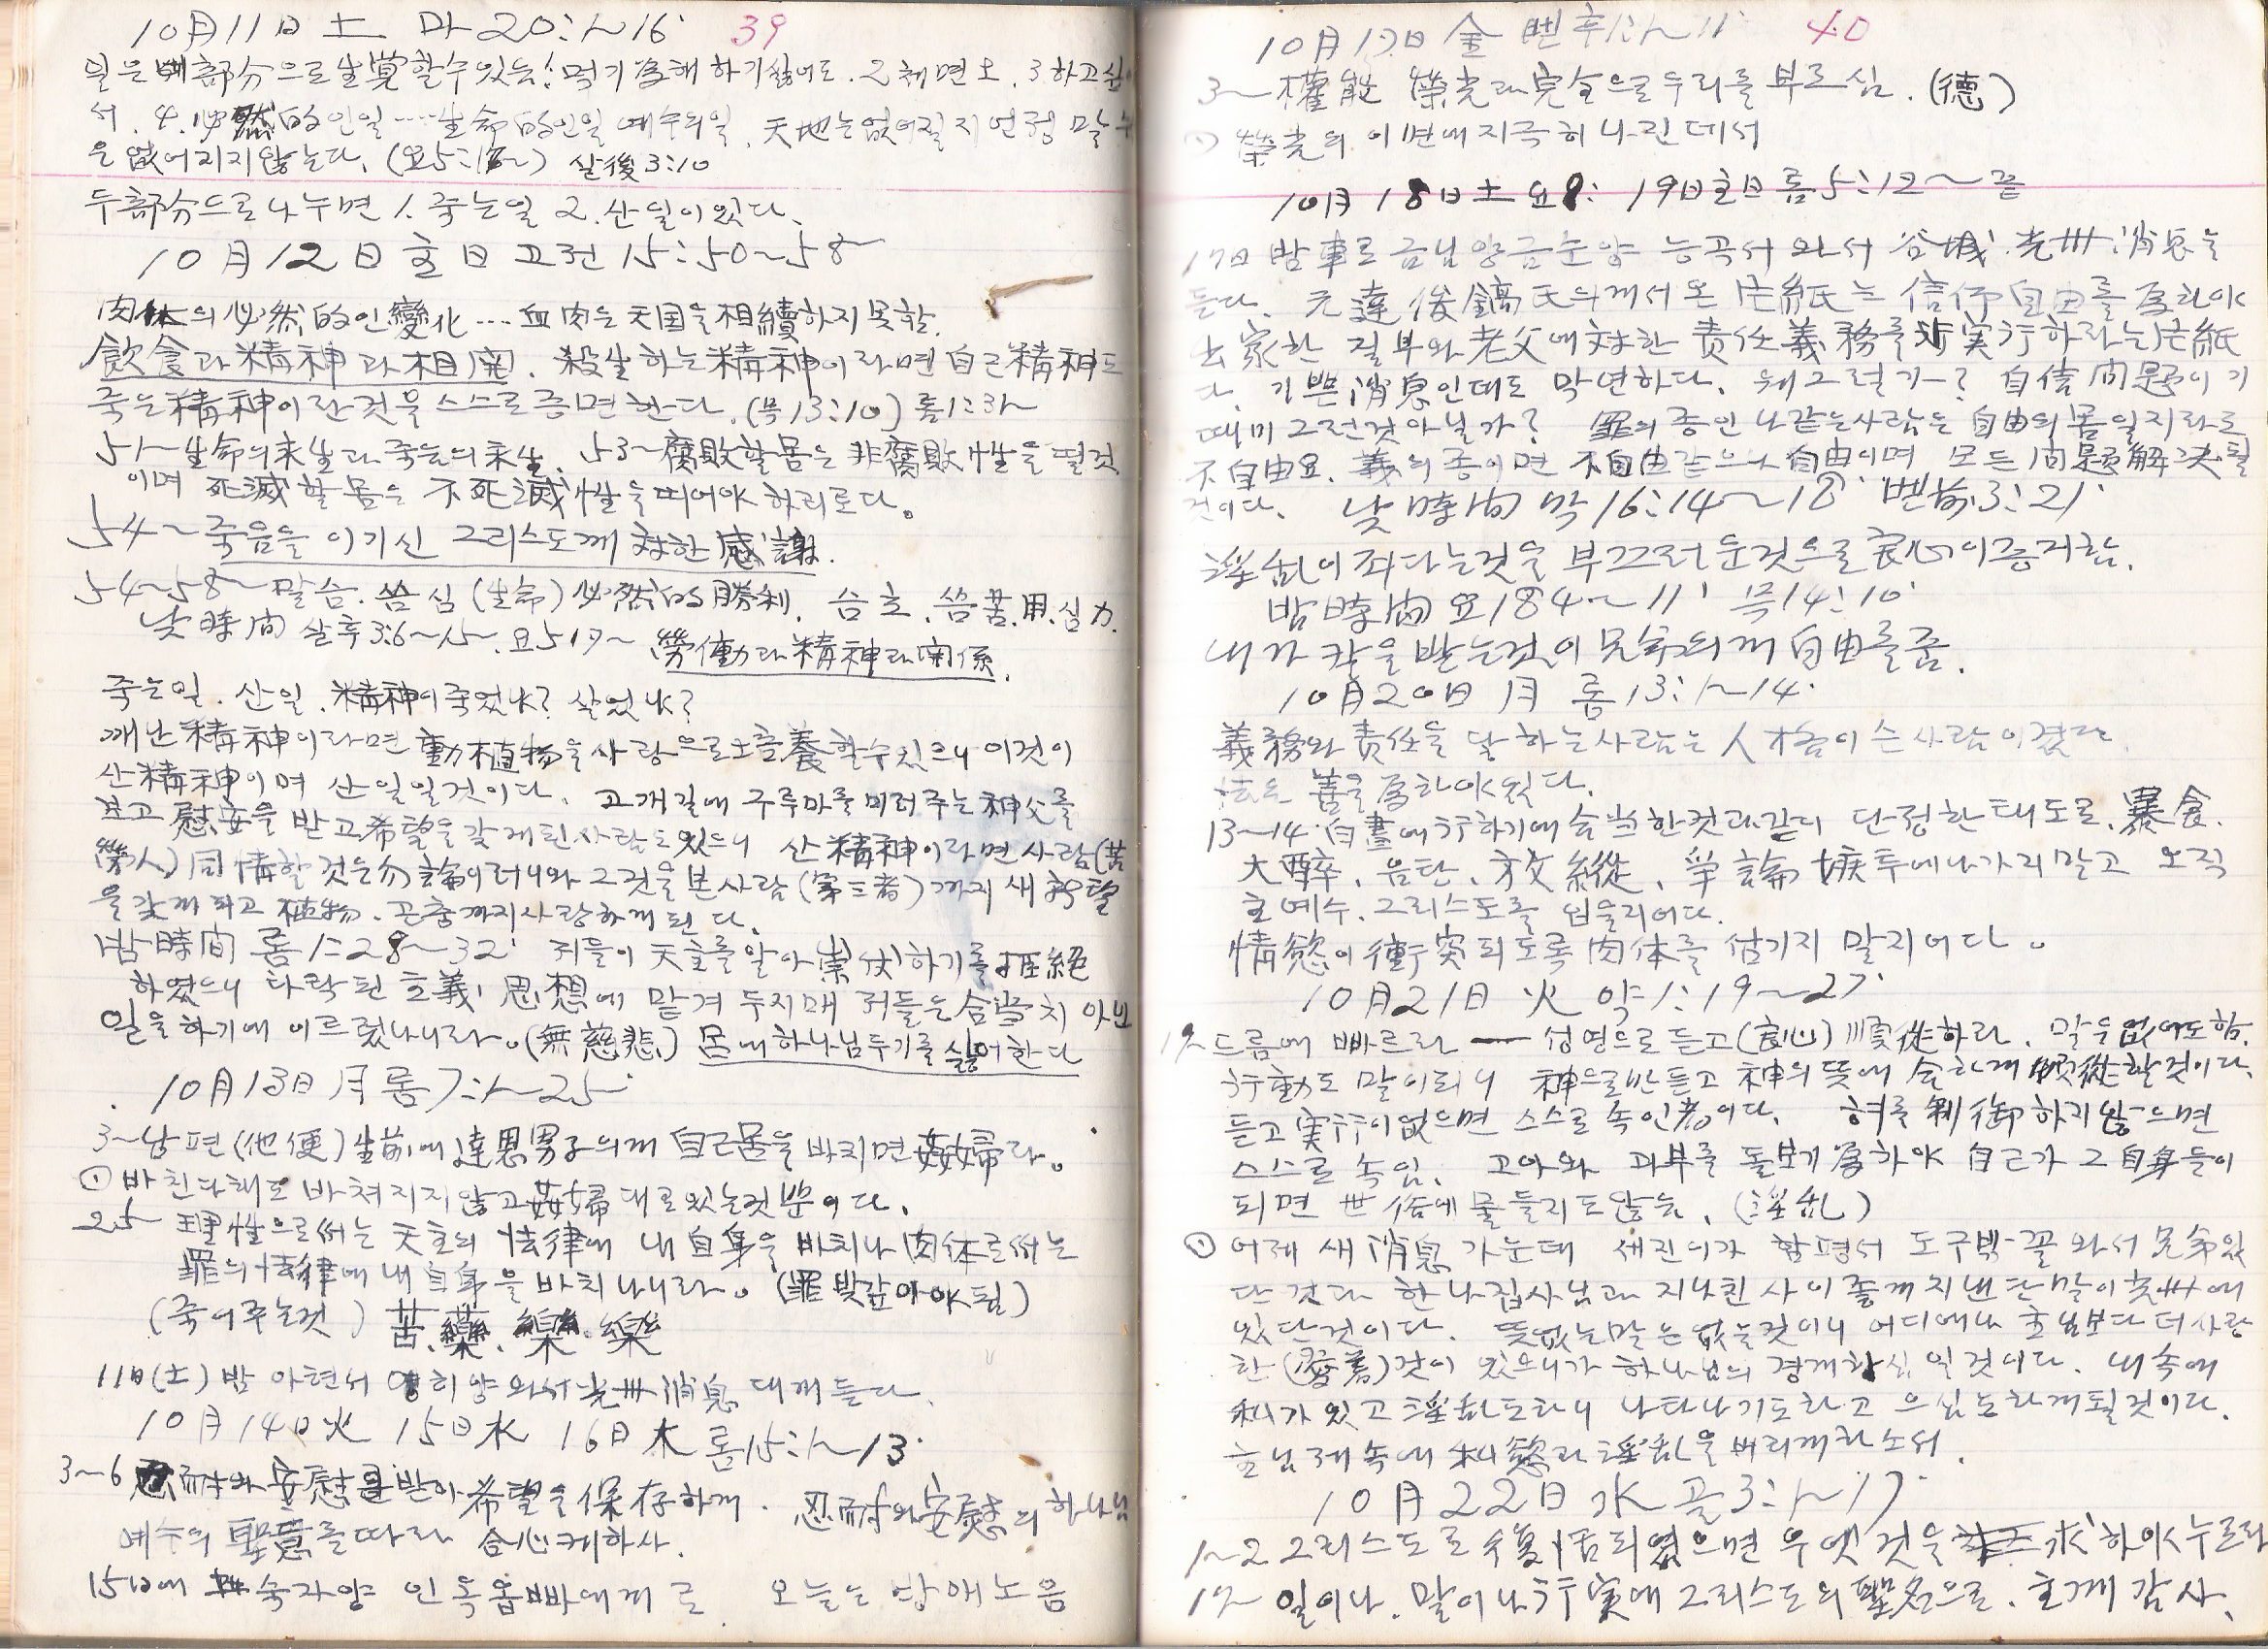 10月11日 土 마20:1~16 39
일은 4部分으로 生覚할수있음! 먹기爲해 하기싫어도. 2 체면으. 3 하고싶어
서. 4. 必然的인일……生命的인일 예수의일. 天地는없어질지언정 말
은 없어지지않는다. (요5:17~) 살後3:10
두部分으로 나누면 1. 죽는일 2. 산일이있다.
10月12日 主日 고전15:50~58
肉体의 必然的인 變化…血肉은 天国을 相續하지못함.
飮食과 精神과 相関. 殺生하는 精神이라면 自己精神도
죽는精神이란것을 스스로 증명한다. (묵13:10) 롬1:31~
51~生命의末生과 죽음의末生. 53~腐敗할몸은 非腐敗性을 떨것
이며 死滅할몸은 不死滅性을 띠어야 하리로다。
54~죽음을 이기신 그리스도께 対한 感謝.
54~58~말씀. 씀심 (生命)必然的 勝利. 씀苦.用.심力.
낮時间 살후3:6~15. 요5 17~ 勞働과 精神과 関係.
죽는일. 산일. 精神이죽었나? 살었나?
깨난精神이라면 動植物을 사랑으로 養할수있으니 이것이
산精神이며 산일일것이다. 고개길에 구루마를 미러주는 神父를
보고 慰安을 받고 希望을 갖게된 사람도 있으니 산精神이라면 사람(苦
勞人)同情할것은勿論이러니와 그것을 본사람(第三者)까지 새希望
을갖게 되고 植物. 곤충까지사랑하게 된다.
밤時間 롬1:28~32 저들이 天主를알아 崇伏하기를拒絕
하였으니 타락된 主義 思想에 맡겨 두시매 저들은 合当치 아넌
일을하기에 이르렀나니라。(無慈悲) 몸에하나님두기를 싫어한다
10月13日 月 롬7:1~25
3~남편(他便)生前에 達 男子의게 自己몸을 바치면 姦婦라。
① 바친다해도 바쳐지지않고 姦婦대로있는것뿐이다.
25 理性으로써는 天主의 法律에 내自身을 바치나 肉体로써는
罪의法律에 내自身을 바치나니라。(罪빚갚아야됨)
(죽어주는것) 苦.藥.樂.樂
11日(土) 밤 아현서 영희양와서光州消息 대개듣다.
10月14日火 15日水 16日木 롬15:1~13
3~6 忍耐와 安慰를받아 希望을 保存하게. 忍耐와安慰의 하나님
예수의 聖意를따라 合心케하사.
15日에 숙자양 인옥옵빠에게로. 오늘은 방애노음
10月17日 金 벧후1:1~11 40
3~權能 榮光과完全으로우리를 부르심. (德)
① 榮光의 이면에지극히나진데서
10月18日土 요8: 19日主日 롬5:12~끝
17日 밤車로 금님양금순양 능곡서 와서 谷城.光州.消息을
듣다. 元達 俊鎬氏의게서 온 片紙는 信仰自由를 爲하야
出家한 질부와 老父에対한 責任義務를 実行하라는片紙
다. 기쁜消息인데도 막연하다. 웨그럴가-? 自信问題이기
때미 그런것아닐가? 罪의종인 나같은사람은 自由의몸일지라도
不自由요. 義의종이면 不自由같으나 自由이며 모든问題解决될
것이다. 낮時间 막16:14~18 벧前3:21
淫乱이죄다는것을 부끄러운것으로良心이증거함.
밤時间 요18 4~11 묵14:10
내가 잔을 받는것이 兄弟의게 自由를줌.
10月20日 月 롬13:1~14
義務와 責任을 달하는사람은 人格이 슨사람이겠다.
法도 善을爲하야있다.
13~14 白晝에行하기에 合当한것과같이 단정한태도로. 暴食.
大醉. 음탄. 放縱. 爭論 嫉투에나가지말고 오직
主예수.그리스도를 입을지어다.
情慾이 衝突되도록 肉体를 섬기지 말지어다。
10月21日 火 약1:19~27
19~드름에 빠르라 ― 성명으로 듣고(良心)順從하라. 말은없어도함.
行動도 말이되니 神으로만듣고 神의뜻에 合하게 順從할것이다.
듣고実行이없으면 스스로 속인者이다. 혀를 制御하지않으면
스스로 속임. 고아와 과부를 돌보기爲하야 自己가 그自身들이
되면 世俗에물들지도않는. (淫乱)
① 어제 새消息 가운데 세진이가 함평서 도구박-꼴 와서兄弟있
단것과 한나집사님과 지나친 사이좋게 지낸단말이光州에
있단것이다. 뜻없는말은없는것이니 어디에나 主님보다더사랑
한(愛着)것이 있으니가 하나님의 경계하심일것이다. 내속에
私가있고 淫乱도하니 나타나기도하고 으심도하게될것이다.
主님 제속에 私慾과 淫乱을버리게하소서.
10月22日 水 골3:1~17
1~2 그리스도로 復活되였으면 우엣것을 求하야누르라
17~ 일이나. 말이나行実에 그리스도의聖名으로. 主께 감사.